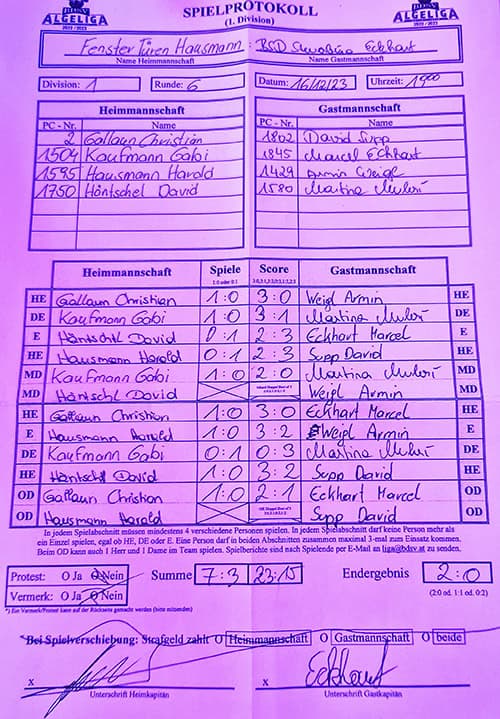 BDSV
ALGELIGA
2022 / 2023
SPIELPROTOKOLL
(1. Division)
BDSV
ALGELIGA
2022 / 2023
Fenster Türen Hausmann : BSD Eckhart
Name Heimmannschaft Name Gastmannschaft
Division: 1 Runde: 6 Datum: 16/12/23 Uhrzeit: 19 00
Heimmannschaft Gastmannschaft
PC - Nr. Name PC - Nr. Name
2 Gallaun Christian 1802 David Supp
1504 Kaufmann Gabi 1845 Marcel Eckhart
1595 Hausmann Harold 1429 Armin Weigl
1750 Häntschel David 1580 Martina
Heimmannschaft Spiele Score Gastmannschaft
1:0 oder 0:1
HE Gallaun Christian 1:0 3:0 Weigl Armin HE
DE Kaufmann Gabi 1:0 3:1 Martina DE
E Häntschl David 0:1 2:3 Eckhart Marcel E
HE Hausmann Harold 0:1 2:3 Supp David HE
MD Kaufmann Gabi 1:0 2:0 Martina MD
MD Häntschl David Weigl Armin MD
HE Gallaun Christian 1:0 3:0 Eckhart Marcel HE
E Hausmann Harold 1:0 3:2 Weigl Armin E
DE Kaufmann Gabi 0:1 0:3 Martina DE
HE Häntschl David 1:0 3:2 Supp David HE
OD Gallaun Christian 1:0 2:1 Eckhart Marcel OD
OD Hausmann Harold Supp David OD
In jedem Spielabschnitt müssen mindestens 4 verschiedene Personen spielen. In jedem Spielabschnitt darf keine Person mehr als
ein Einzel spielen, egal ob HE, DE oder E. Eine Person darf in beiden Abschnitten zusammen maximal 3-mal zum Einsatz kommen.
Beim OD kann auch 1 Herr und 1 Dame im Team spielen. Spielberichte sind nach Spielende per E-Mail an liga@bdsv.at zu senden.
Protest: O Ja O Nein Summe 7:3 23:15 Endergebnis 2:0
Vermerk: O Ja O Nein (2:0 od. 1:1 od. 0:2)
*) Ein Vermerk/Protest kann auf der Rückseite gemacht werden (bitte ankreuzen)
*Bei Spielverschiebung: Strafgeld zahlt O Heimmannschaft O Gastmannschaft O beide
x x Eckhart
Unterschrift Heimkapitän Unterschrift Gastkapitän